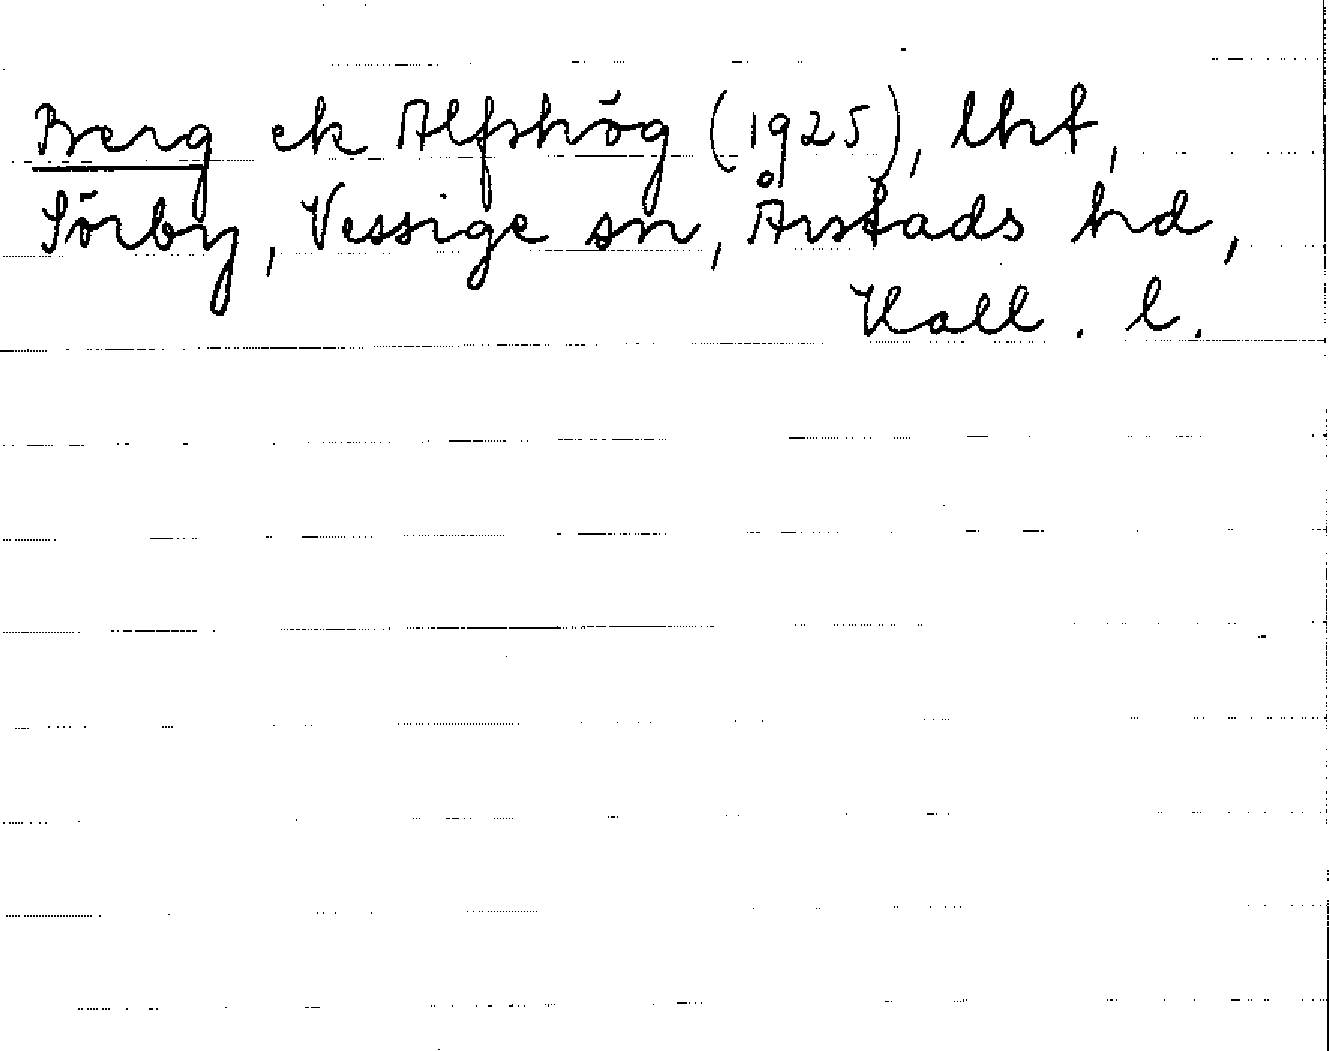 Berg ek Alfshög (1925), lht,
Sörby, Vessige sn, Årstads hd,
Hall. l.